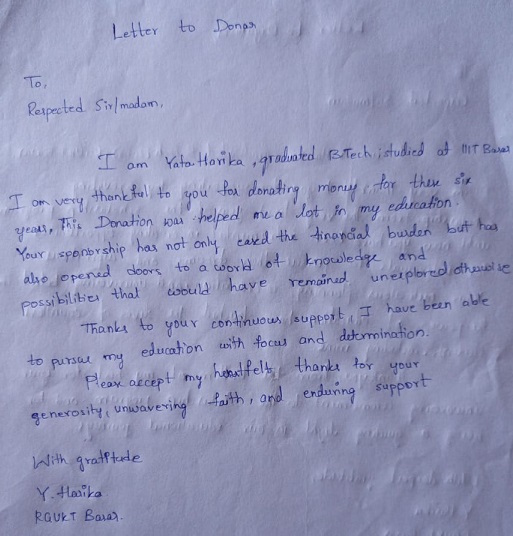 Letter to Donar
To,
Respected Sir/madam,
I am Yata.Harika, graduated B.Tech, studied at IIIT Basar
I am very thankful to you for donating money, for these six
years, This Donation was helped me a lot, in my education.
Your sponsorship has not only eased the financial burden but has
also opened doors to a world of knowledge and
possibilities that would have remained unexplored otherwise
Thanks to your continuous support, I have been able
to pursue my education with focus and determination.
Please accept my heartfelt thanks for your
generosity, unwavering faith, and enduring support
With gratitude
Y. Harika.
RGUKT Basar.